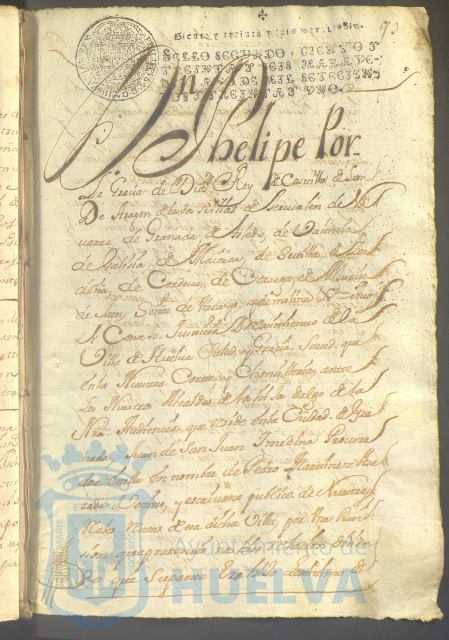 Siento y treinta y seis marauedis.
73
SELLO SEGVNDO, CIENTO Y
TREINTA Y SEIS MARAVE-
DIS, AÑO DE MIL SETECIEN
TOS Y TREINTA Y VNO.
Dn Phelipe Por
La Gracia de Dios Rey de Castilla de Leon
De Aragon de las dos Sicilias de Jerusalen de Na
uarra, de Granada de Toledo, de Valencia
de Galicia, de Mallorca, de Seuilla de Cer
deña, de Cordoua, de Corcega, de Murcia
de Jaen, Señor de Vizcaya, y de molina &a
Al Conzejo Justicia y Reximiento de la
Villa de Huelua Salud, y Grazia, Saued, que
en la Nuestra Corte, y Chanzilleria, ante
los Nuestros Alcaldes de los hijos dalgo de la
Nra. Audiencia que reside en la Ciudad de Gra
nada, Juan de San Juan Procura
dor en ella en nombre de Pedro
Vezino, y escriuano publico
de esa dicha Villa, por
que
que Su parte Era hijo
Ayuntamiento de
HUELVA